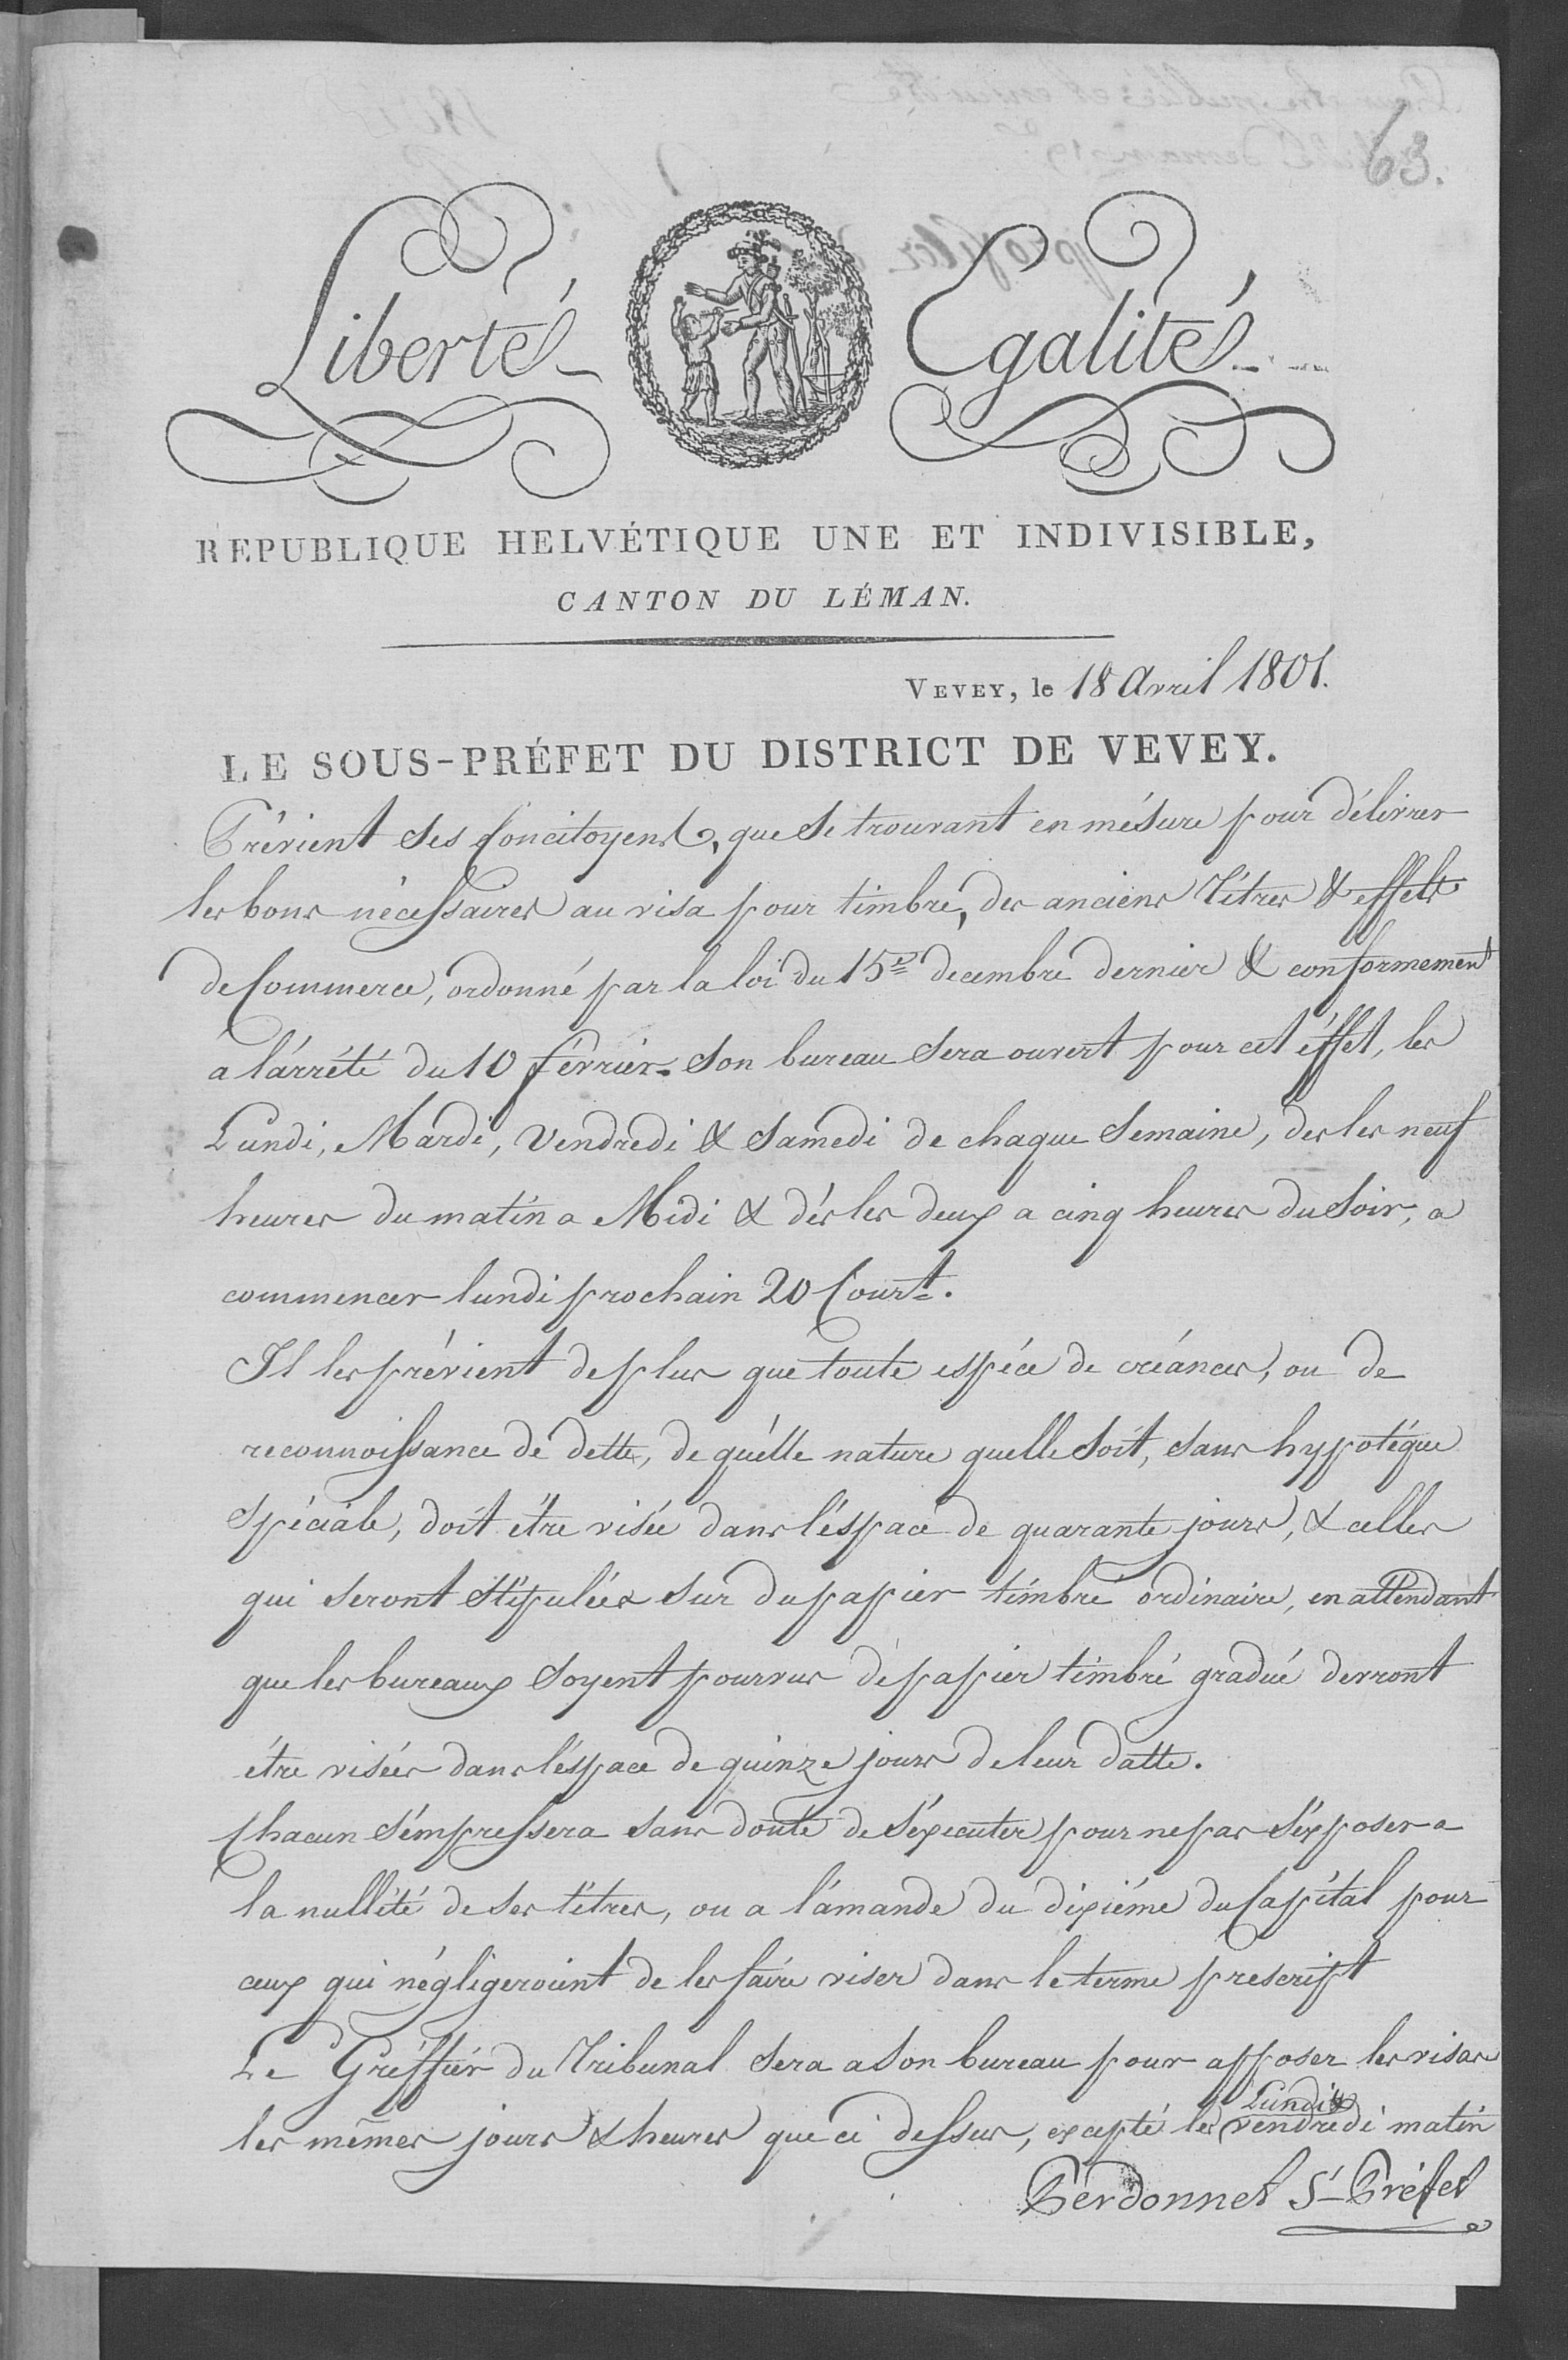 63.
Liberté Egalité
REPUBLIQUE HELVÉTIQUE UNE ET INDIVISIBLE,
CANTON DU LÉMAN.
VEVEY, le 18 Avril 1801.
LE SOUS-PRÉFET DU DISTRICT DE VEVEY.
Prévient ses Concitoyens, que se trouvant en mésure pour délivrer
les bons nécessaires au visa pour timbre, des anciens Titres & effets
de Commerce, ordonné par la loi du 15e decembre dernier & conformement
a l'arrété du 10 février. Son bureau sera ouvert pour cet éffet, les
Lundi, Mardi, Vendredi & Samedi de chaque Semaine, des les neuf
heures du matin a Midi & dès les deux a cinq heures du Soir, a
commencer lundi prochain 20 Court.
Il les prévient de plus que toute espéce de créances, ou de
reconnoissance de dette, de quelle nature quelle soit, sans hypotéque
spéciale, doit étre visée dans l'éspace de quarante jours, & celles
qui seront stipulées sur du papier timbré ordinaire, en attendant
que les bureaux soyent pourvus de papier timbré gradué devront
étre visées dans l'éspace de quinze jours de leur datte.
Chacun s'émpressera sans doute de s'éxecuter pour ne pas s'éxposer a
la nullité de ses titres, ou a l'amande du dixiéme du Capital pour
ceux qui négligeroient de les faire viser dans le terme prescript
Le Gréffier du Tribunal sera a son bureau pour apposer les visas
les mêmes jours & heures que ci dessus, excepté les Lundi & vendredi matin
Perdonnet S-Préfet